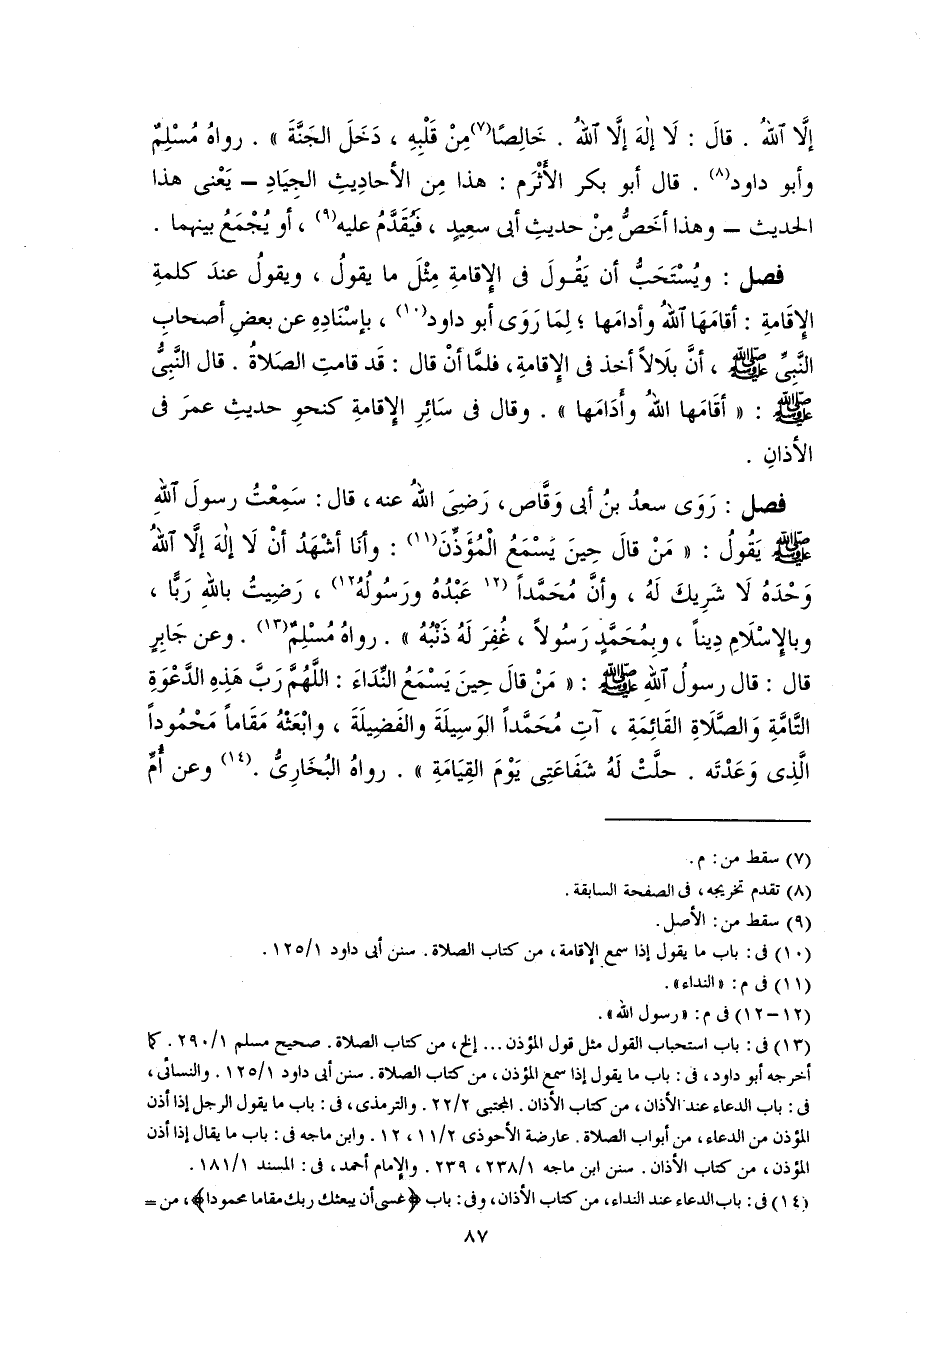 إلَّا ٱللهُ . قالَ : لَا إلٰهَ إلَّا ٱللهُ . خَالِصًا(٧)مِنْ قَلْبِهِ ، دَخَلَ الجَنَّةَ » . رواهُ مُسْلِمٌ
وأبو داود(٨) . قال أبو بكر الأَثْرَم : هذا مِن الأحاديثِ الجِيَادِ – يَعْنى هذا
الحديث – وهذا أخَصُّ مِنْ حديثِ أبى سعِيدٍ ، فَيُقَدَّمُ عليه(٩) ، أو يُجْمَعُ بينهما .
فصل : ويُسْتَحَبُّ أن يَقُـولَ فى الإِقامةِ مِثْلَ ما يقولُ ، ويقولُ عندَ كلمةِ
الإِقَامَةِ : أقامَهَا ٱللهُ وأدامَها ؛ لِمَا رَوَى أبو داود(١٠) ، بإسْنَادِهِ عن بعضِ أصحابِ
النَّبِىِّ ﷺ ، أنَّ بلَالاً أخذ فى الإقامةِ، فلمَّا أنْ قال : قَد قامتِ الصَّلاةُ . قال النَّبِىُّ
ﷺ : « أقَامَها اللهُ وأدَامَها » . وقال فى سَائِرِ الإقامةِ كنحوِ حديثِ عمرَ فى
الأذانِ .
فصل : رَوَى سعدُ بنُ أبى وَقَّاص، رَضِىَ اللهُ عنه، قال : سَمِعْتُ رسولَ ٱللهِ
ﷺ يَقُولُ : « مَنْ قالَ حِينَ يَسْمَعُ الْمُؤَذِّنَ(١١) : وأنَا أشْهَدُ أنْ لَا إلٰهَ إلَّا ٱللهُ
وَحْدَهُ لَا شَرِيكَ لَهُ ، وأنَّ مُحَمَّداً (١٢ عَبْدُهُ ورَسُولُهُ١٢) ، رَضِيتُ باللهِ رَبًّا ،
وبالإِسْلَامِ دِيناً ، وبِمُحَمَّدٍ رَسُولاً ، غُفِرَ لَهُ ذَنْبُهُ » . رواهُ مُسْلِمٌ(١٣) . وعن جَابِرٍ
قال : قال رسولُ ٱللهِ ﷺ : « مَنْ قالَ حِينَ يَسْمَعُ النِّدَاءَ : اللَّهُمَّ رَبَّ هَذِهِ الدَّعْوَةِ
التَّامَّةِ وَالصَّلَاةِ القَائِمَةِ ، آتِ مُحَمَّداً الوَسِيلَةَ والفَضِيلَةَ ، وابْعَثْهُ مَقَاماً مَحْمُوداً
الَّذِى وَعَدْتَه . حلَّتْ لَهُ شَفَاعَتِى يَوْمَ القِيَامَةِ » . رواهُ البُخَارِىُّ .(١٤) وعن أُمِّ
(٧) سقط من : م .
(٨) تقدم تخريجه ، فى الصفحة السابقة .
(٩) سقط من : الأصل .
(١٠) فى : باب ما يقول إذا سمع الإقامة ، من كتاب الصلاة . سنن أبى داود ١٢٥/١ .
(١١) فى م : «النداء» .
(١٢-١٢) فى م : «رسول الله» .
(١٣) فى : باب استحباب القول مثل قول المؤذن ... إلخ، من كتاب الصلاة . صحيح مسلم ٢٩٠/١ . كما
أخرجه أبو داود ، فى : باب ما يقول إذا سمع المؤذن ، من كتاب الصلاة . سنن أبى داود ١٢٥/١ . والنسائى ،
فى : باب الدعاء عند الأذان ، من كتاب الأذان . المجتبى ٢٢/٢ . والترمذى، فى : باب ما يقول الرجل إذا أذن
المؤذن من الدعاء ، من أبواب الصلاة . عارضة الأحوذى ١١/٢ ، ١٢ . وابن ماجه فى : باب ما يقال إذا أذن
المؤذن ، من كتاب الأذان . سنن ابن ماجه ٢٣٨/١ ، ٢٣٩ . والإمام أحمد ، فى : المسند ١٨١/١ .
(١٤) فى : باب الدعاء عند النداء ، من كتاب الأذان، وفى : باب ﴿عسى أن يبعثك ربك مقاما محمودا﴾، من =
٨٧